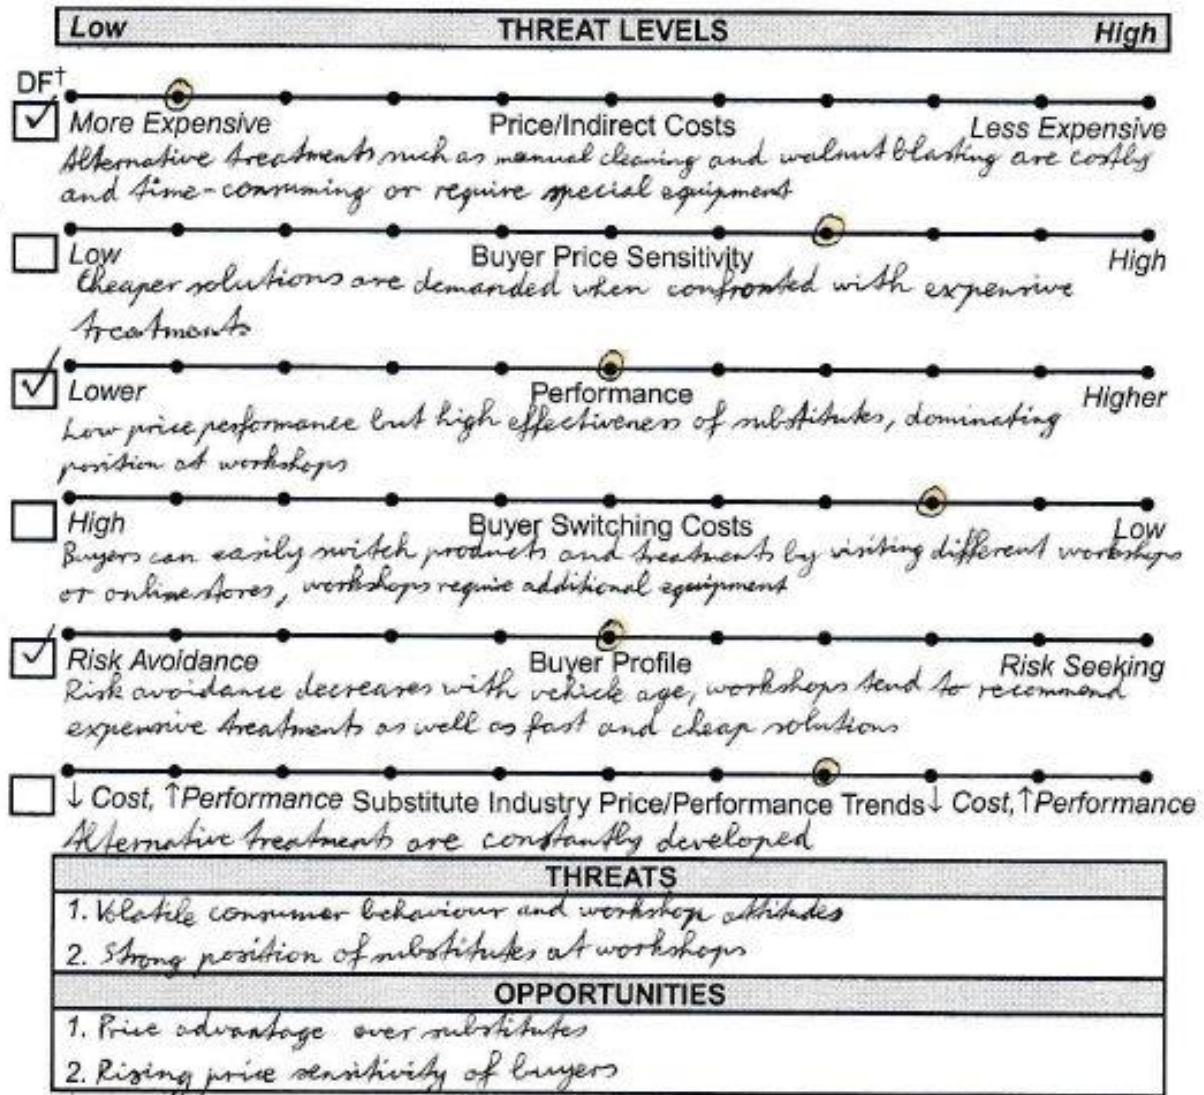 Low THREAT LEVELS High
DF†
More Expensive Price/Indirect Costs Less Expensive
Alternative treatments such as manual cleaning and walnut blasting are costly
and time-consuming or require special equipment
Low Buyer Price Sensitivity High
Cheaper solutions are demanded when confronted with expensive
treatments
Lower Performance Higher
Low price performance but high effectiveness of substitutes, dominating
position at workshops
High Buyer Switching Costs Low
Buyers can easily switch products and treatments by visiting different workshops
or online stores, workshops require additional equipment
Risk Avoidance Buyer Profile Risk Seeking
Risk avoidance decreases with vehicle age, workshops tend to recommend
expensive treatments as well as fast and cheap solutions
↓ Cost, ↑Performance Substitute Industry Price/Performance Trends ↓ Cost,↑Performance
Alternative treatments are constantly developed
THREATS
1. Volatile consumer behaviour and workshop attitudes
2. Strong position of substitutes at workshops
OPPORTUNITIES
1. Price advantage over substitutes
2. Rising price sensitivity of buyers